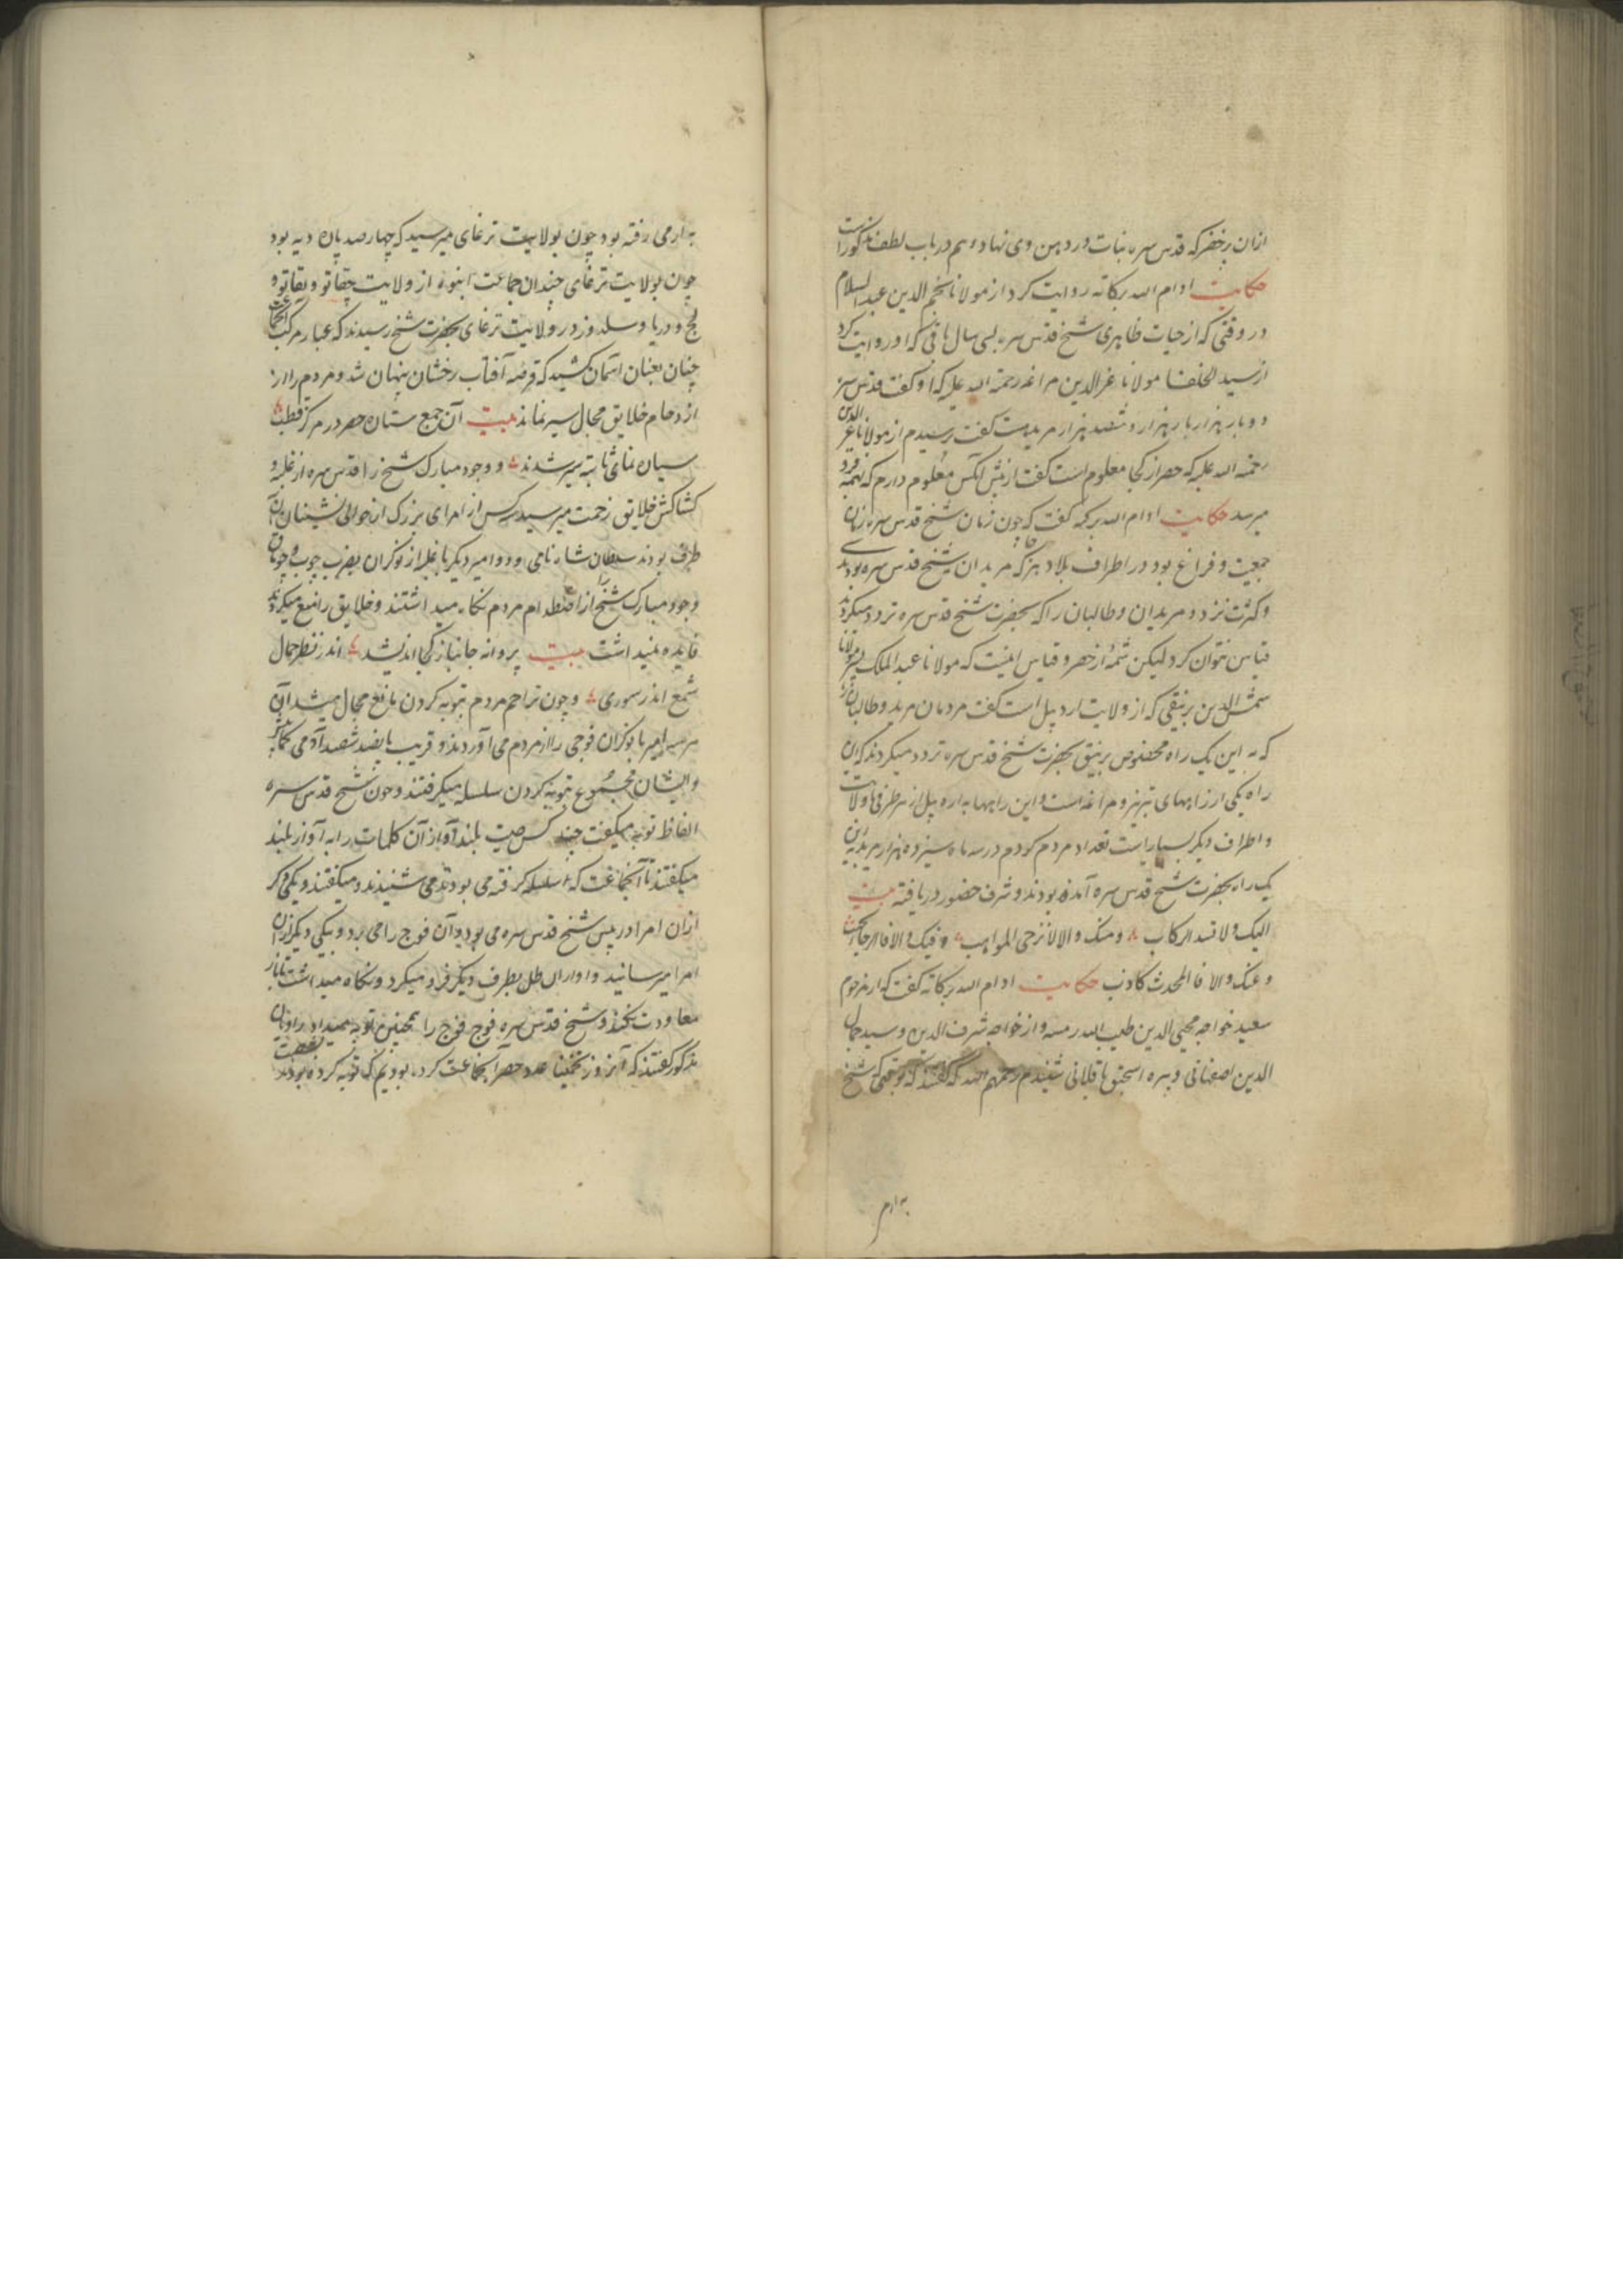 ازان برخضر که قدس سره نبات در دهن وی نهاد و هم در باب لطف مذکور است
حکایت ادام الله برکاته روایت کرد از مولانا نجم الدین عبد السلام
در وقتی که از حیات ظاهری شیخ قدس سره سی سال باقی که او روایت کرد
از سید الخلفا مولانا عز الدین مراغه رحمة الله علیه که او گفت قدس سره
دو بار هزار بار هزار و ششصد هزار مریدست گفت پرسیدم از مولانا عز الدین
رحمة الله علیه که حصر از کجا معلوم است گفت از پیش آنکس معلوم دارم که
میرسد حکایت ادام الله برکته گفت که چون زمان شیخ قدس سره زمان
جمعیت و فراغ بود در اطراف بلاد هر جا که مریدان شیخ قدس سره بودندی
و کثرت تردد مریدان و طالبان را که بحضرت شیخ قدس سره تردد میکردند
قیاس نتوان کرد لیکن شمهٔ از حصر و قیاس اینست که مولانا عبد الملک پسر مولانا
شمس الدین برنیقی که از ولایت اردبیل است گفت مردمان مرید و طالبان را
که به این یک راه مخصوص برنیق بحضرت شیخ قدس سره تردد میکردند که این
راه یکی از راههای تبریز و مراغه است و این راهها به اردبیل از هر طرفی و ولایت
و اطراف دیگر بسیار است تعداد مردم کردم در سه ماه سیزده هزار مرید به این
یک راه بحضرت شیخ قدس سره آمده بودند و شرف حضور دریافته بیت
الیک و لا تشد الرکاب و منک و الا لا ترجی المواهب و فیک و الا فالرجا
و عنک و الا فالمحدث کاذب حکایت ادام الله برکاته گفت که از مرحوم
سعید خواجه محیی الدین طیب الله رمسه و از خواجه شرف الدین و سید جمال
الدین اصفهانی و پیره اسحق باقلانی شنیدم رحمهم الله که گفتند که وقتی که شیخ
به ارم
به ارمی رفته بود چون بولایت ترغای میرسید که چهارصد پاره دیه بود
چون بولایت ترغای چندان جماعت انبوه از ولایت جغاتو و تغاتو و
و دریا و سلدوز در ولایت ترغای بحضرت شیخ رسیدند که غبار مرکب
چنان بعنان آسمان کشید که قرصه آفتاب رخشان پنهان شد و مردم را از
ازدحام خلایق مجال سیر نماند بیت آن جمع ستاره حصر در مرکز قطب
سیاره نمای ثابته سیر شدند و وجود مبارک شیخ را قدس سره از غلبه و
کشاکش خلایق زحمت میرسید سه کس از امرای بزرگ از حوالی نشینان آن
طرف بودند سلطان شاه نامی و دو امیر دیگر با غلبه از نوکران بضرب چوب و چوماق
وجود مبارک شیخ را از اصطدام مردم نگاه میداشتند و خلایق را منع میکردند
فایده نمیداشت بیت پروانه جانباز کجا اندیشد اندر نظر جمال
شمع اندر سوری و چون تزاحم مردم بتوبه کردن مانع مجال میشد آن
هر سه امیر با نوکران فوجی را از مردم می آوردند و قریب پانصد ششصد آدمی
و ایشان مجموع بتوبه کردن سلسله میگرفتند و چون شیخ قدس سره
الفاظ توبه میگفت چند کس صیت بلند آواز آن کلمات را به آواز بلند
میگفتند تا آنجماعت که سلسله گرفته می بودند می شنیدند و میگفتند و یکی دیگر
ازان امرا در پیش شیخ قدس سره می بود و آن فوج را می برد و یکی دیگر ازان
امرا میرسانید و او ازان طل بطرف دیگر فرد میکرد و نگاه میداشت تا باز
معاودت نکند و شیخ قدس سره فوج فوج را همچنین توبه میداد راویان
مذکور گفتند که آنروز تخمینا عدد حصر آنجماعت کرده بودیم که توبه کرده بودند